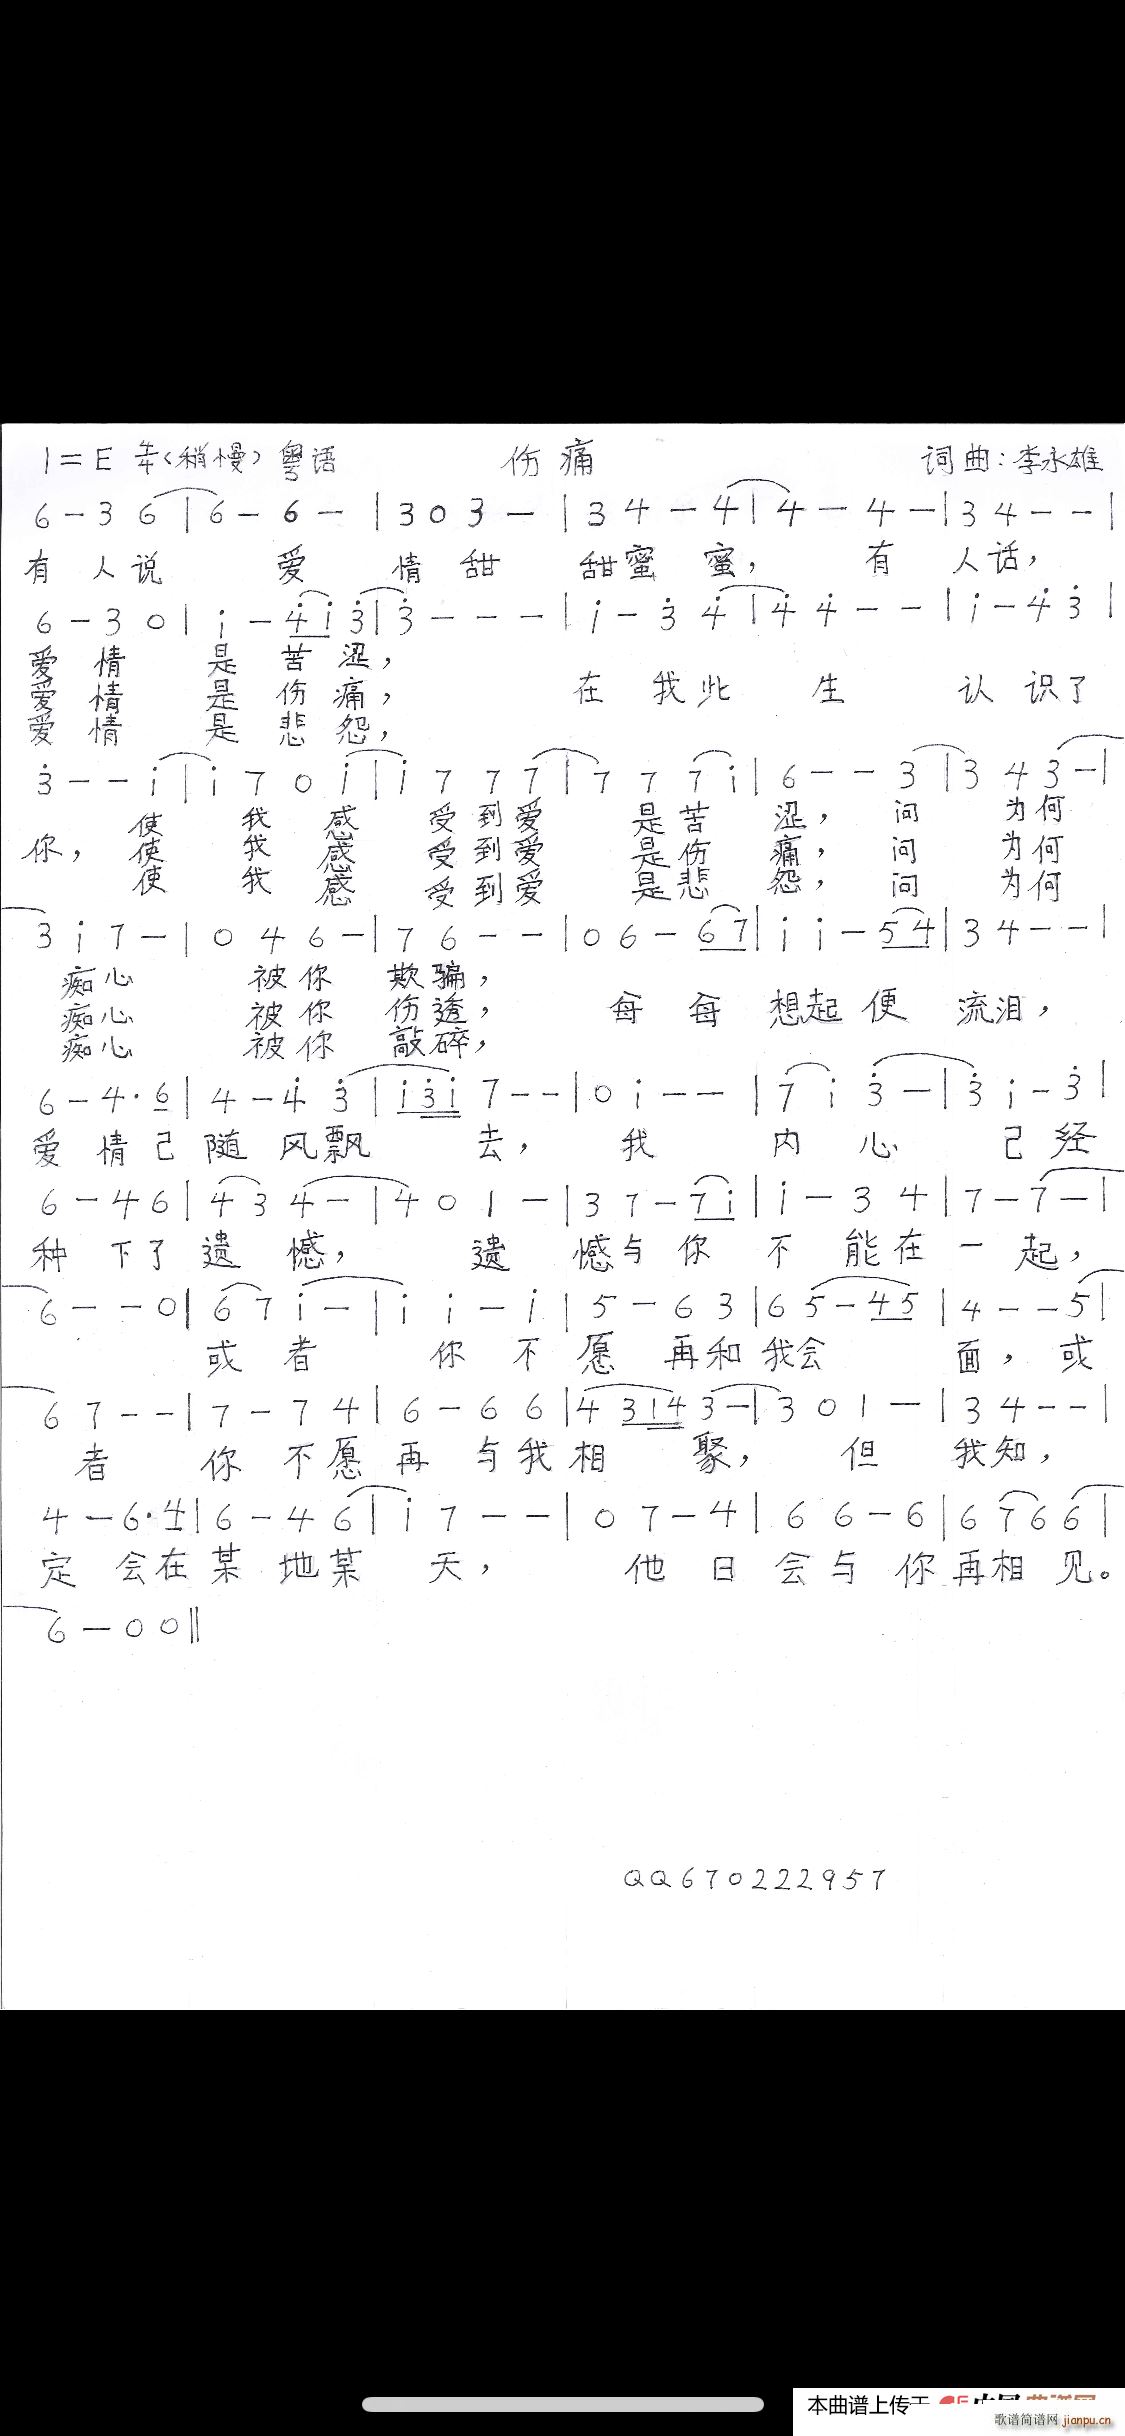 1=E 4/4（稍慢）粤语 伤痛 词曲：李永雄
6 - 3 6 | 6 - 6 - | 3 0 3 - | 3 4 - 4 | 4 - 4 - | 3 4 - - |
有人说 爱 情甜 甜蜜蜜， 有 人话，
6 - 3 0 | i - 4̇ i 3̇ | 3̇ - - - | i - 3̇ 4̇ | 4̇ 4̇ - - | i - 4̇ 3̇ |
爱情 是苦涩，
爱情 是伤痛， 在我此生 认识了
爱情 是悲怨，
3̇ - - i | i 7 0 i | i 7 7 7 | 7 7 7 i | 6 - - 3 | 3 4 3 - |
使 我 感 受到爱 是苦 涩， 问 为何
你， 使 我 感 受到爱 是伤 痛， 问 为何
使 我 感 受到爱 是悲 怨， 问 为何
3 i 7 - | 0 4 6 - | 7 6 - - | 0 6 - 6 7 | i i - 5 4 | 3 4 - - |
痴心 被你 欺骗，
痴心 被你 伤透， 每 每 想起便 流泪，
痴心 被你 敲碎，
6 - 4· 6 | 4 - 4̇ 3̇ | i 3̇ i 7 - - | 0 i - - | 7 i 3̇ - | 3̇ i - 3̇ |
爱情己随风飘 去， 我 内 心 己经
6 - 4 6 | 4 3 4 - | 4 0 1 - | 3 7 - 7 i | i - 3 4 | 7 - 7 - |
种下了遗 憾， 遗 憾与你 不能在一起，
6 - - 0 | 6 7 i - | i i - i | 5 - 6 3 | 6 5 - 4 5 | 4 - - 5 |
或者 你不愿再和我会 面，或
6 7 - - | 7 - 7 4 | 6 - 6 6 | 4 3 1 4 3 - | 3 0 1 - | 3 4 - - |
者 你不愿再与我相 聚， 但 我知，
4 - 6· 4 | 6 - 4 6 | i 7 - - | 0 7 - 4 | 6 6 - 6 | 6 7 6 6 |
定会在某地某 天， 他日会与你再相见。
6 - 0 0 ‖
QQ670222957
本曲谱上传于
歌谱简谱网 jianpu.cn